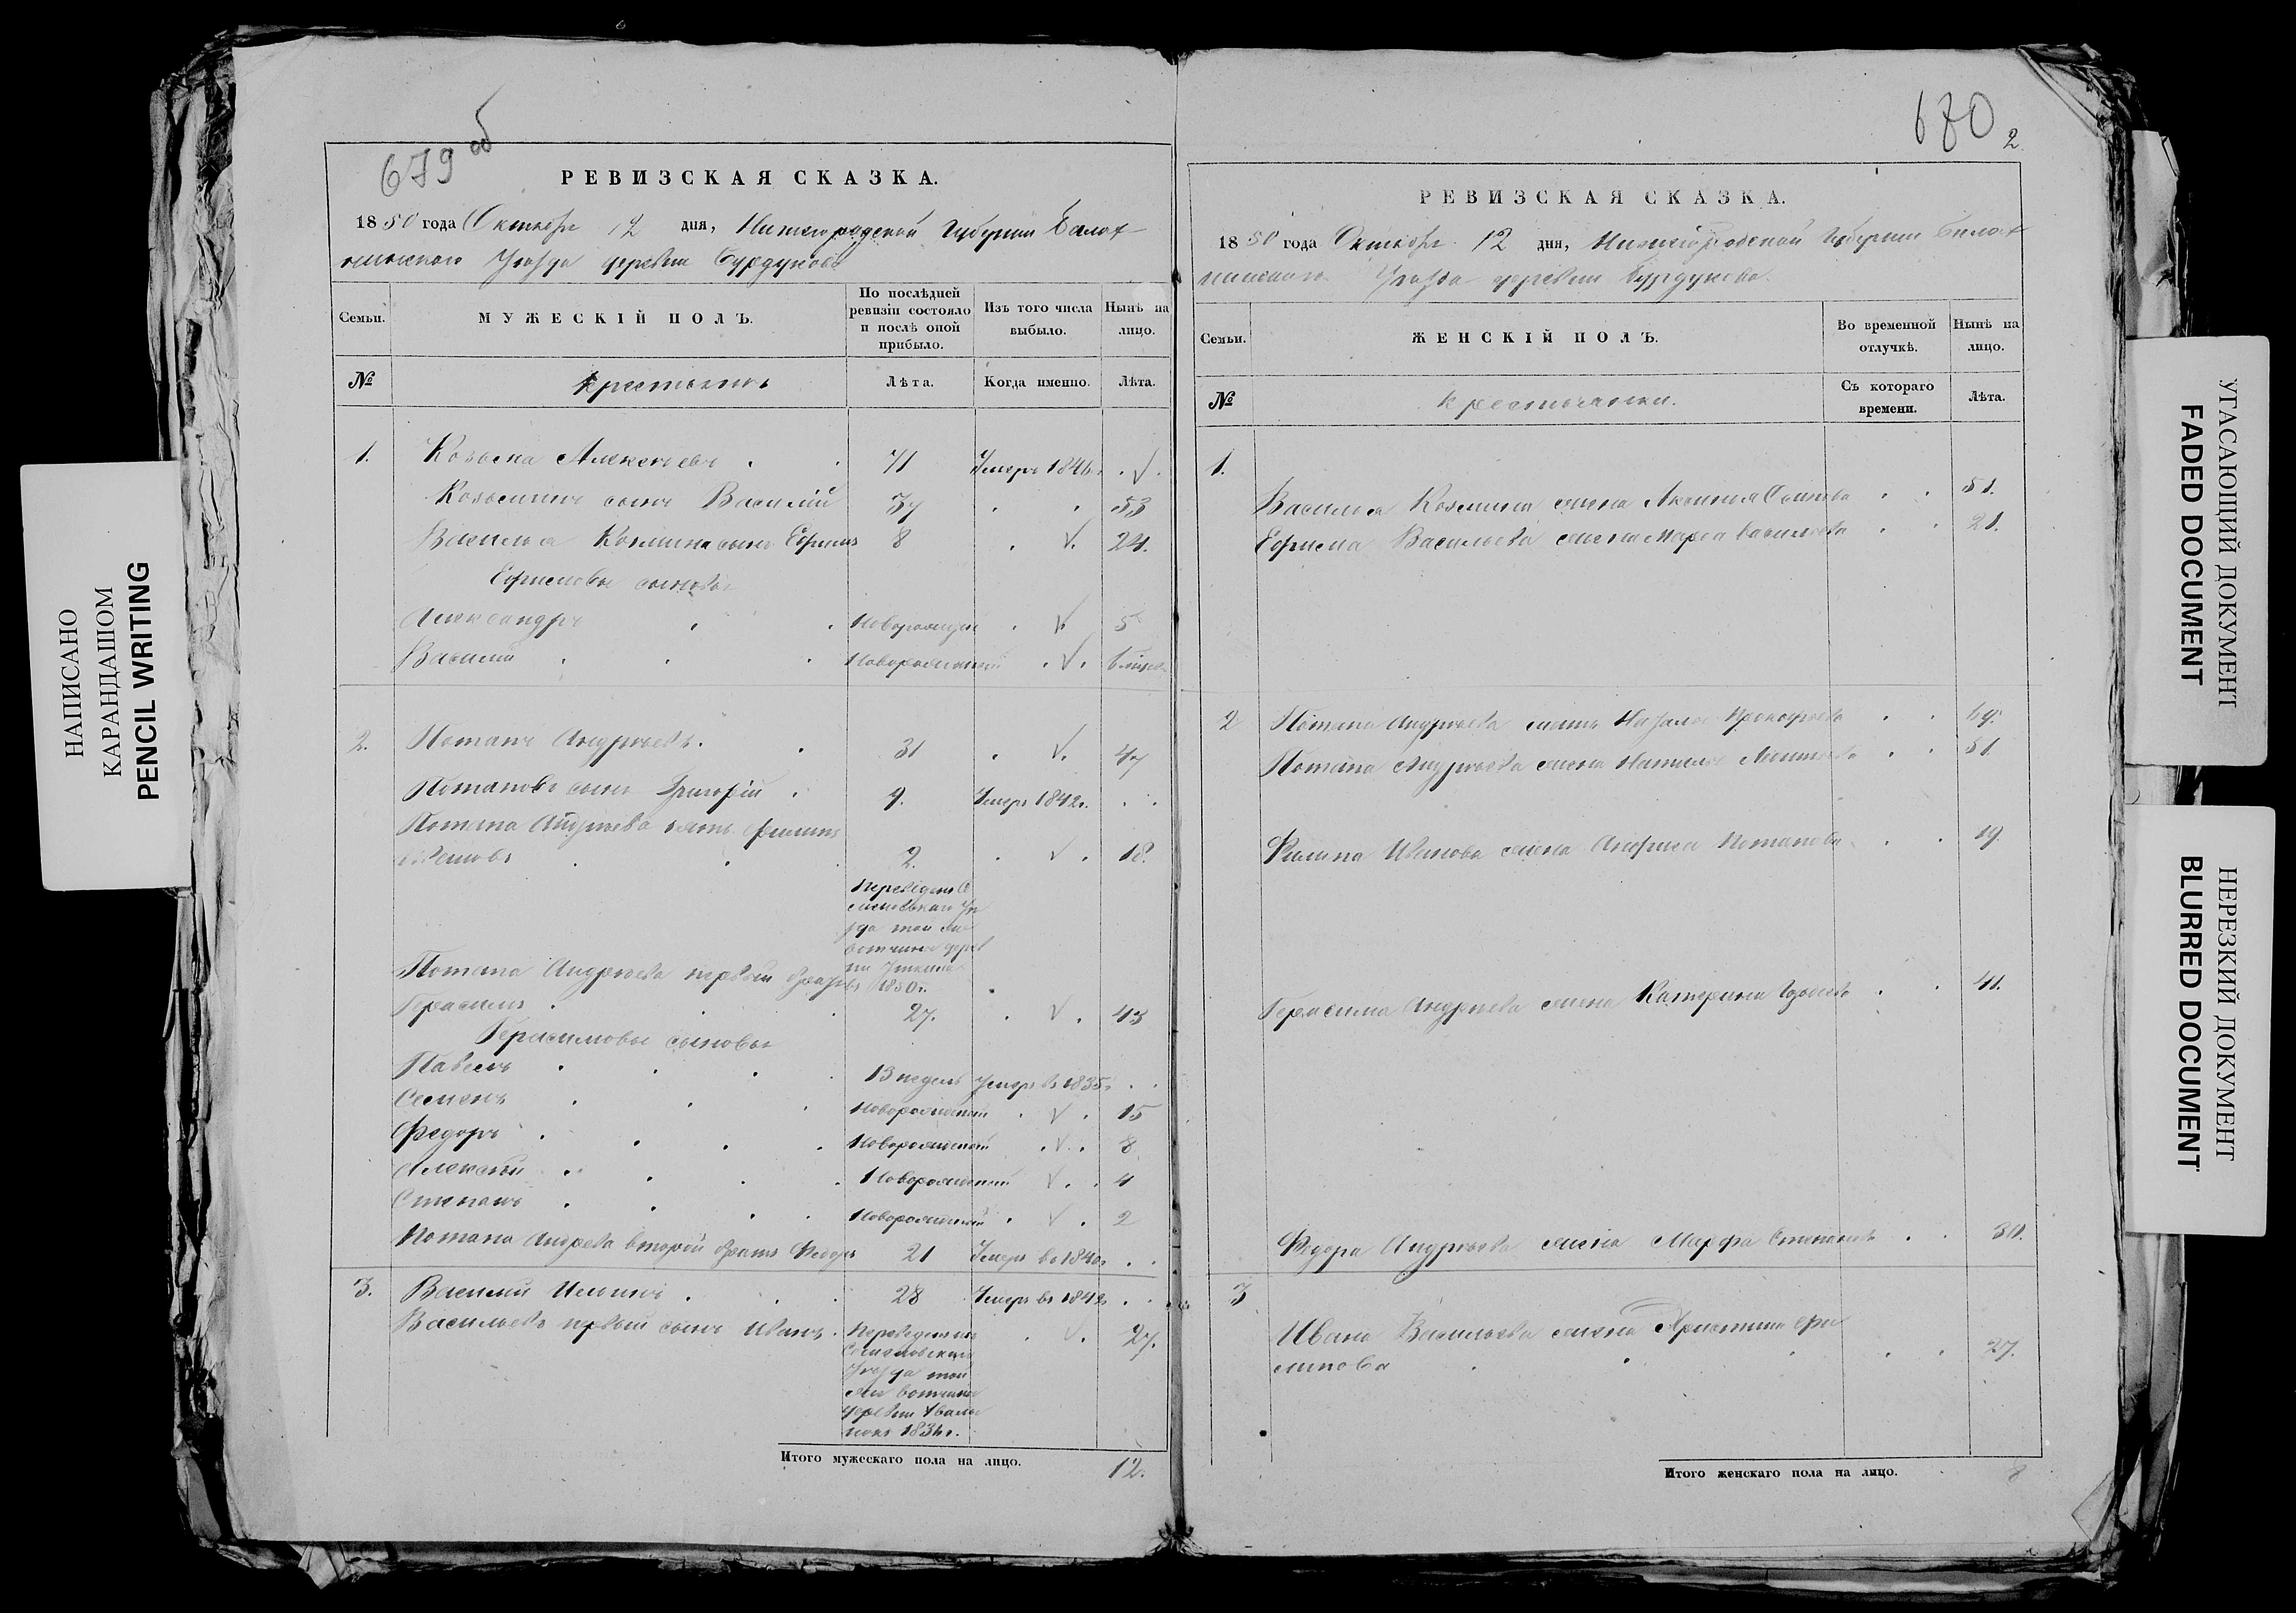 НАПИСАНО
КАРАНДАШОМ
PENCIL WRITING
679 об
РЕВИЗСКАЯ СКАЗКА.
1850 года Октября 12 дня, Нижегородской Губерніи Балах-
нинскаго Уѣзда деревни Бурдуково
Семьи. МУЖЕСКІЙ ПОЛЪ. По послѣдней ревизіи состояло и послѣ оной прибыло. Изъ того числа выбыло. Нынѣ на лицо.
№ Крестьянъ Лѣта. Когда именно. Лѣта.
1. Козьма Алексѣевъ 71 Умеръ 1846г.
Козьминъ сынъ Василій 37 53
Василья Козмина сынъ Ефимъ 8 24.
Ефимовы сыновья
Александръ Новорожден 5
Василий Новорожденный
2. Потапъ Андрѣевъ. 31 47
Потаповъ сынъ Григорій 9. Умеръ 1842г.
Потапа Андрѣева зять Филипъ
Ивановъ 2. 18.
Переведенъ
1850г.
Потапа Андрѣева первый братъ
Герасимъ 27. 43
Герасимовы сыновья
Павелъ 13 недель Умеръ въ 1835г
Семенъ Новорожденный 15
Федоръ Новорожденный 8
Алексѣй Новорожденный 4
Степанъ Новорожденный 2
Потапа Андреева второй братъ Федоръ 21 Умеръ въ 1840г
3. Василий Ильинъ 28 Умеръ въ 1842г
Васильевъ первый сынъ Иванъ. 27.
Переведенъ из
Семеновскаго
Уѣзда той
же вотчины
деревни
1834г.
Итого мужескаго пола на лицо. 12.
680
2
РЕВИЗСКАЯ СКАЗКА.
1850 года Октября 12 дня, Нижегородской Губерніи Балах-
нинскаго Уѣзда деревни Бурдуково.
Семьи. ЖЕНСКІЙ ПОЛЪ. Во временной отлучкѣ. Нынѣ на лицо.
№ Крестьянки. Съ котораго времени. Лѣта.
1.
Василья Козмина жена Аксинья 51.
Ефима Васильева жена Марѳа Васильева 21.
2 Потапа Андрѣева мать Прокофьева 69.
Потапа Андрѣева жена Наталья 51
Филипа Иванова жена Анфиса Потапова 19.
Герасима Андрѣева жена Катерина 41.
Федора Андрѣева жена Марфа Степанова 30.
3
Ивана Васильева жена Христинья Фи
липова 27.
Итого женскаго пола на лицо. 8
УГАСАЮЩИЙ ДОКУМЕНТ
FADED DOCUMENT
НЕРЕЗКИЙ ДОКУМЕНТ
BLURRED DOCUMENT